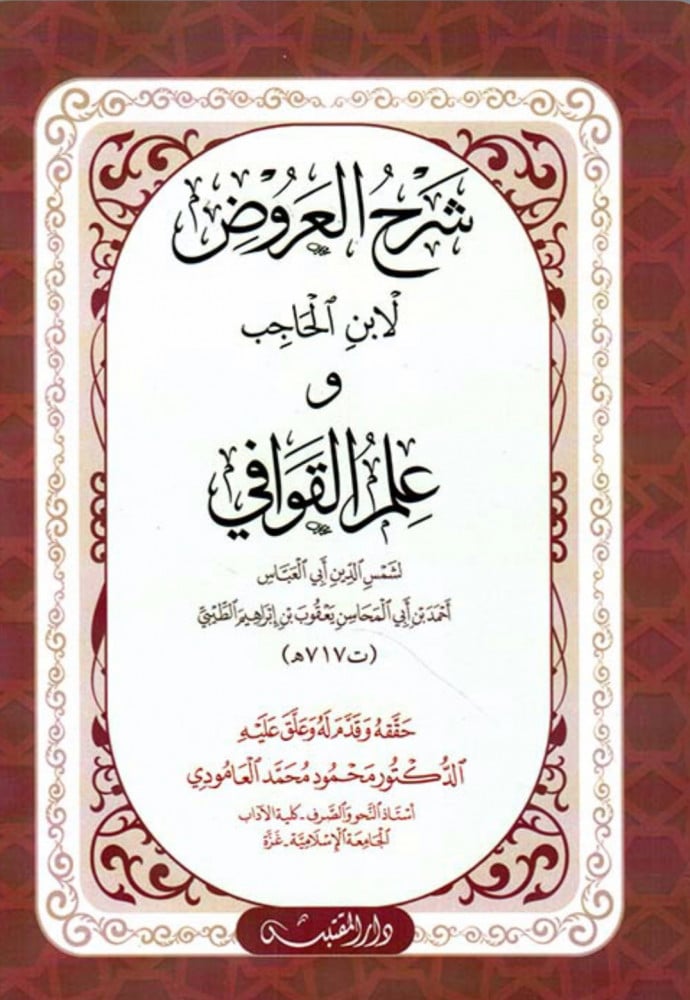 شَرْحُ العَرُوْضِ
لابْنِ الْحَاجِب
و
عِلْمُ القَوَافِي
لشَمْسِ الدِّينِ أَبِي الْعَبَّاسِ
أَحْمَدَ بْنِ أَبِي الْمَحَاسِنِ يَعْقُوبَ بْنِ إِبْرَاهِيمَ الطِّيْبِيِّ
(ت ٧١٧ هـ)
حَقَّقَهُ وَقَدَّمَ لَهُ وَعَلَّقَ عَلَيْهِ
الدُّكْتُور مَحْمُود مُحَمَّد الْعَامُودِي
أستاذ النَّحْوِ وَالصَّرف - كلية الآداب
الْجَامِعَة الإِسْلَامِيَّة - غَزَّة
دار المقتبس